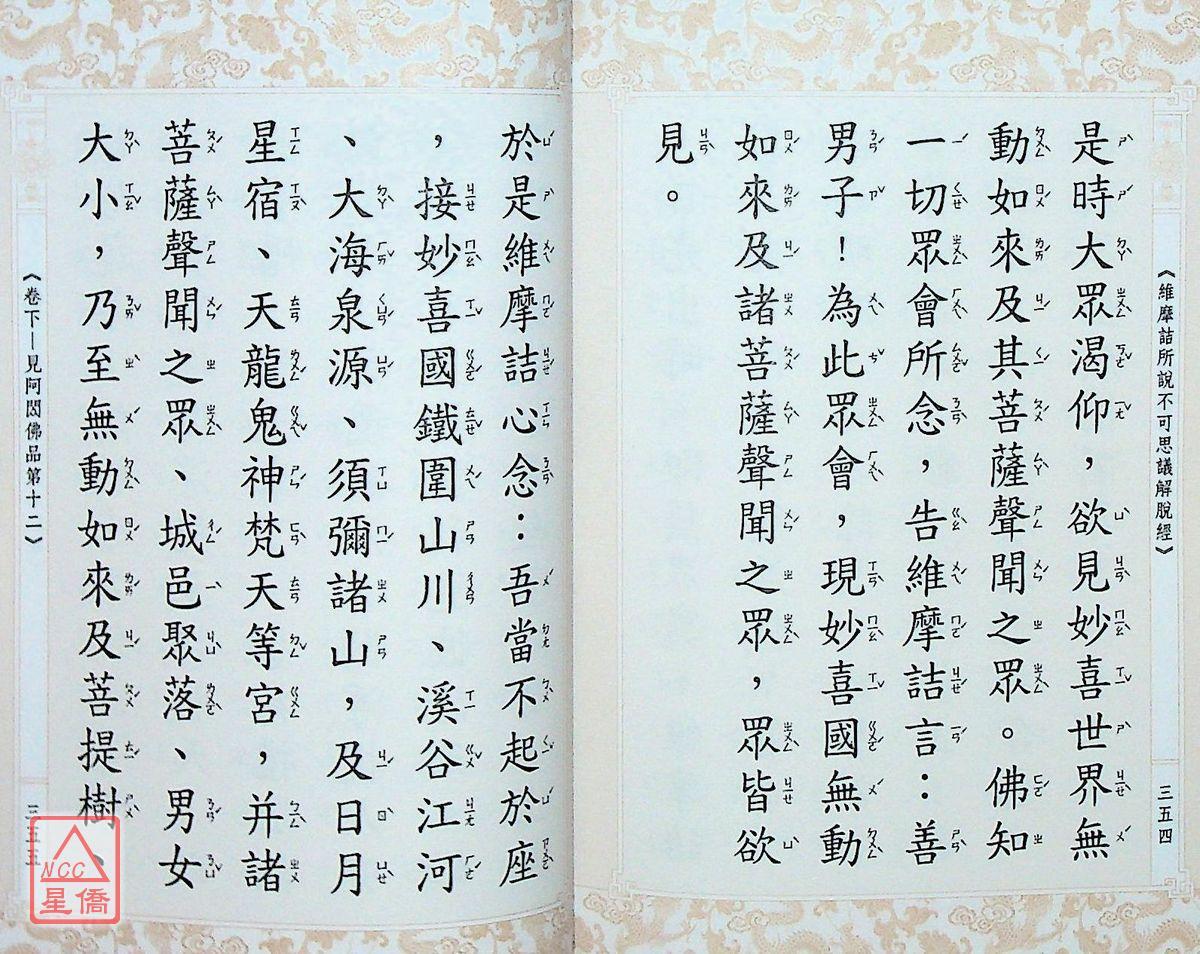 《維摩詰所說不可思議解脫經》
三五四
是時大眾渴仰，欲見妙喜世界無
動如來及其菩薩聲聞之眾。佛知
一切眾會所念，告維摩詰言：善
男子！為此眾會，現妙喜國無動
如來及諸菩薩聲聞之眾，眾皆欲
見。
於是維摩詰心念：吾當不起於座
，接妙喜國鐵圍山川、溪谷江河
、大海泉源、須彌諸山，及日月
星宿、天龍鬼神梵天等宮，并諸
菩薩聲聞之眾、城邑聚落、男女
大小，乃至無動如來及菩提樹、
《卷下—見阿閦佛品第十二》
三五五
NCC
星僑